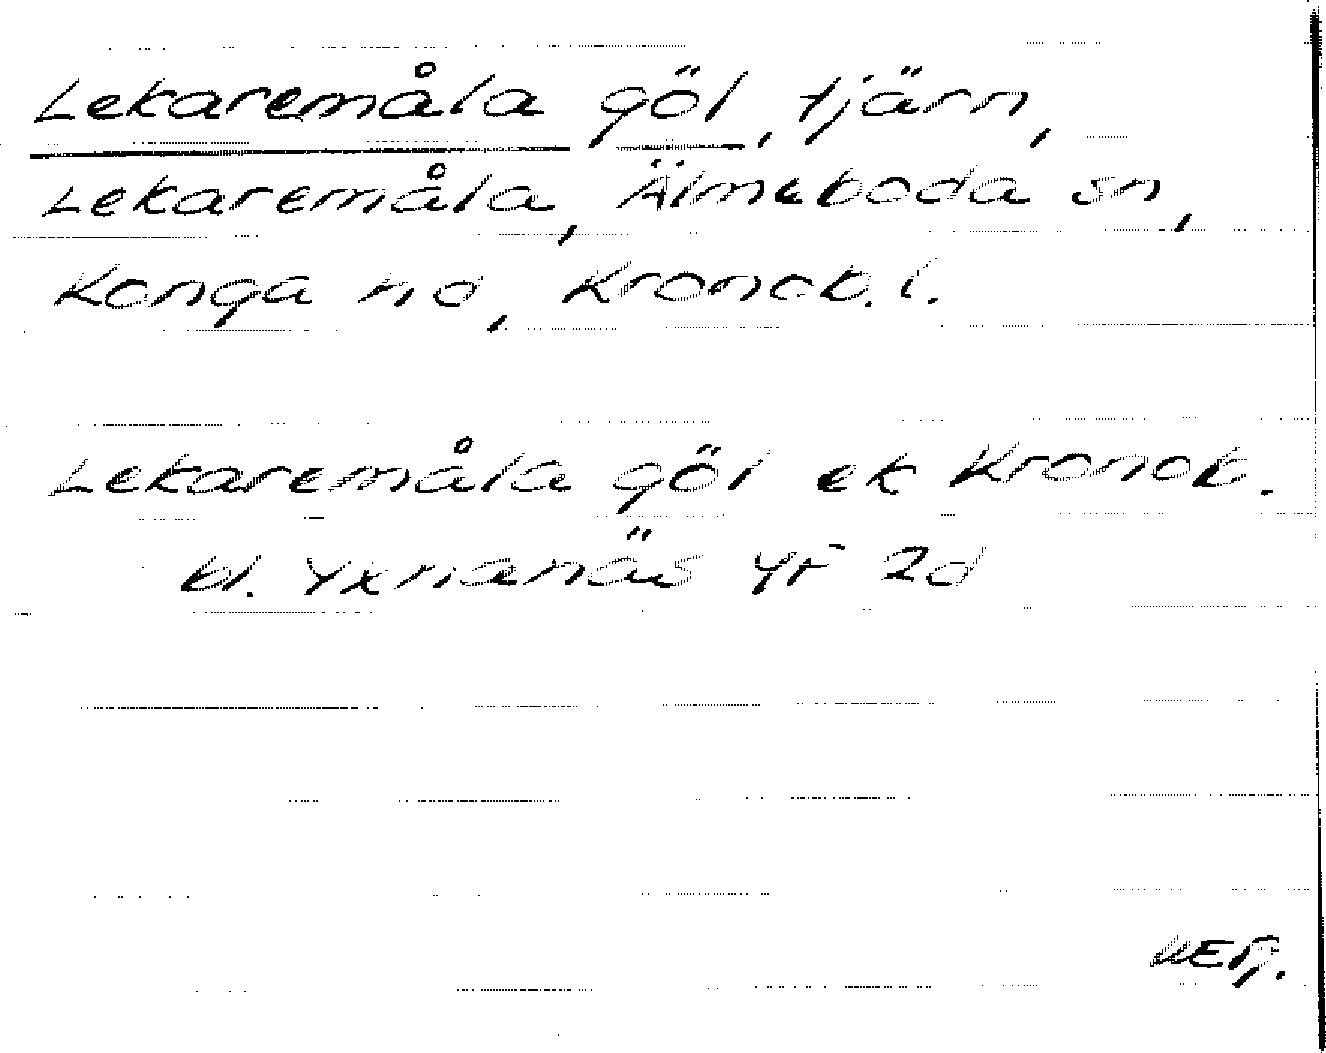 Lekaremåla göl, tjärn,
Lekaremåla, Älmeboda sn,
Konga hd, Kronob. l.
Lekaremåla göl ek Kronob.
bl. Yxnanäs yr 2d